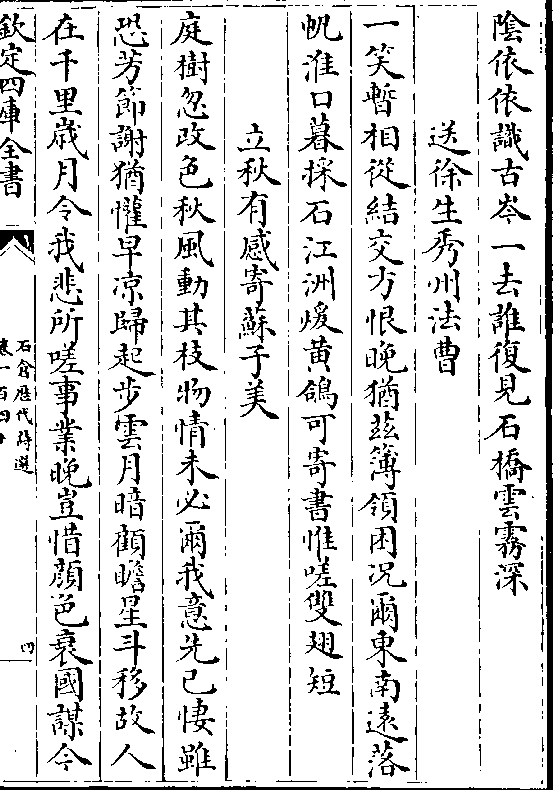 陰依依識古岑一去誰復見石橋雲霧深
送徐生秀州法曹
一笑暫相從結交方恨晚猶兹簿領困况爾東南遠落
帆淮口暮採石江洲煖黄鵠可寄書惟嗟雙翅短
立秋有感寄蘇子美
庭樹忽改色秋風動其枝物情未必爾我意先已悽雖
恐芳節謝猶懼早凉歸起步雲月暗顧瞻星斗移故人
在千里歳月令我悲所嗟事業晚豈惜顔色衰國謀今
欽定四庫全書
石倉歴代詩選
卷一百四十
四